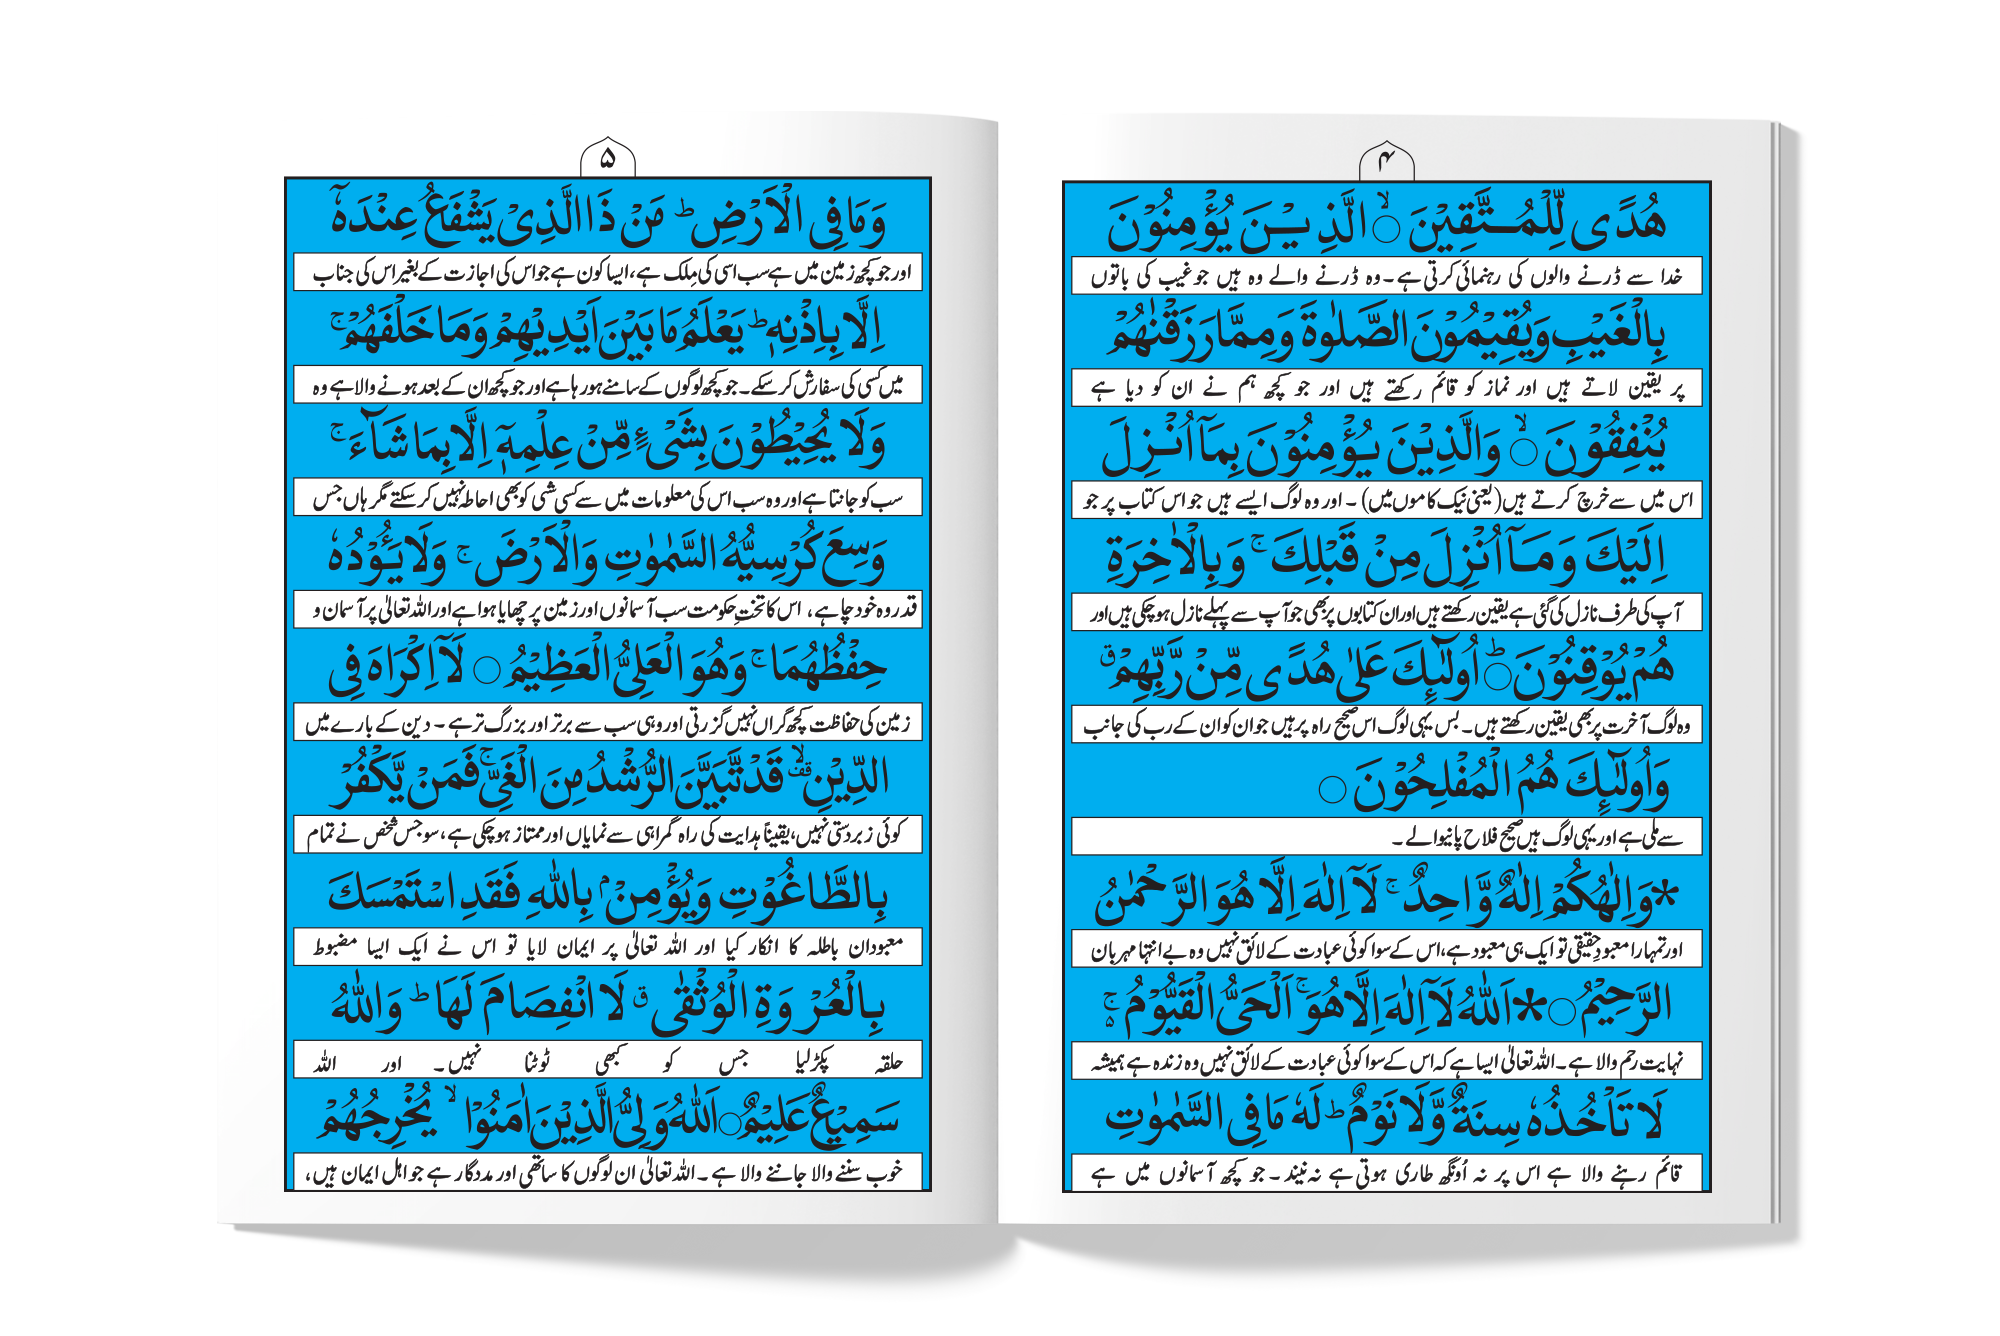 ۴
هُدًى لِّلْمُتَّقِيْنَ ۙ○ الَّذِيْنَ يُؤْمِنُوْنَ
خدا سے ڈرنے والوں کی رہنمائی کرتی ہے۔ وہ ڈرنے والے وہ ہیں جو غیب کی باتوں
بِالْغَيْبِ وَيُقِيْمُوْنَ الصَّلٰوةَ وَمِمَّا رَزَقْنٰهُمْ
پر یقین لاتے ہیں اور نماز کو قائم رکھتے ہیں اور جو کچھ ہم نے ان کو دیا ہے
يُنْفِقُوْنَ ۙ○ وَالَّذِيْنَ يُؤْمِنُوْنَ بِمَآ اُنْزِلَ
اس میں سے خرچ کرتے ہیں (یعنی نیک کاموں میں) ۔ اور وہ لوگ ایسے ہیں جو اس کتاب پر جو
اِلَيْكَ وَمَآ اُنْزِلَ مِنْ قَبْلِكَ ۚ وَبِالْاٰخِرَةِ
آپ کی طرف نازل کی گئی ہے یقین رکھتے ہیں اور ان کتابوں پر بھی جو آپ سے پہلے نازل ہو چکی ہیں اور
هُمْ يُوْقِنُوْنَ ؕ○ اُولٰٓئِكَ عَلٰى هُدًى مِّنْ رَّبِّهِمْ ۗ
وہ لوگ آخرت پر بھی یقین رکھتے ہیں۔ بس یہی لوگ اس صحیح راہ پر ہیں جو ان کو ان کے رب کی جانب
وَاُولٰٓئِكَ هُمُ الْمُفْلِحُوْنَ ○
سے ملی ہے اور یہی لوگ ہیں صحیح فلاح پانیوالے ۔
*وَاِلٰهُكُمْ اِلٰهٌ وَّاحِدٌ ۚ لَآ اِلٰهَ اِلَّا هُوَ الرَّحْمٰنُ
اور تمہارا معبودِ حقیقی تو ایک ہی معبود ہے، اس کے سوا کوئی عبادت کے لائق نہیں وہ بے انتہا مہربان
الرَّحِيْمُ ○* اَللّٰهُ لَآ اِلٰهَ اِلَّا هُوَ ۚ اَلْحَىُّ الْقَيُّوْمُ ۚ۵
نہایت رحم والا ہے۔ اللہ تعالیٰ ایسا ہے کہ اس کے سوا کوئی عبادت کے لائق نہیں وہ زندہ ہے ہمیشہ
لَا تَاْخُذُهٗ سِنَةٌ وَّلَا نَوْمٌ ؕ لَهٗ مَا فِى السَّمٰوٰتِ
قائم رہنے والا ہے اس پر نہ اُونگھ طاری ہوتی ہے نہ نیند ۔ جو کچھ آسمانوں میں ہے
۵
وَمَا فِى الْاَرْضِ ؕ مَنْ ذَا الَّذِىْ يَشْفَعُ عِنْدَهٗٓ
اور جو کچھ زمین میں ہے سب اسی کی مِلک ہے، ایسا کون ہے جو اس کی اجازت کے بغیر اس کی جناب
اِلَّا بِاِذْنِهٖ ؕ يَعْلَمُ مَا بَيْنَ اَيْدِيْهِمْ وَمَا خَلْفَهُمْ ۚ
میں کسی کی سفارش کر سکے۔ جو کچھ لوگوں کے سامنے ہو رہا ہے اور جو کچھ ان کے بعد ہونے والا ہے وہ
وَلَا يُحِيْطُوْنَ بِشَىْءٍ مِّنْ عِلْمِهٖٓ اِلَّا بِمَا شَآءَ ۚ
سب کو جانتا ہے اور وہ سب اس کی معلومات میں سے کسی شی کو بھی احاطہ نہیں کر سکتے مگر ہاں جس
وَسِعَ كُرْسِيُّهُ السَّمٰوٰتِ وَالْاَرْضَ ۚ وَلَا يَــُٔوْدُهٗ
قدر وہ خود چاہے، اس کا تختِ حکومت سب آسمانوں اور زمین پر چھایا ہوا ہے اور اللہ تعالیٰ پر آسمان و
حِفْظُهُمَا ۚ وَهُوَ الْعَلِىُّ الْعَظِيْمُ ○ لَآ اِكْرَاهَ فِى
زمین کی حفاظت کچھ گراں نہیں گزرتی اور وہی سب سے برتر اور بزرگ تر ہے ۔ دین کے بارے میں
الدِّيْنِ ۙقف قَدْ تَّبَيَّنَ الرُّشْدُ مِنَ الْغَىِّ ۚ فَمَنْ يَّكْفُرْ
کوئی زبردستی نہیں، یقیناً ہدایت کی راہ گمراہی سے نمایاں اور ممتاز ہو چکی ہے، سو جس شخص نے تمام
بِالطَّاغُوْتِ وَيُؤْمِنْۢ بِاللّٰهِ فَقَدِ اسْتَمْسَكَ
معبودان باطلہ کا انکار کیا اور اللہ تعالیٰ پر ایمان لایا تو اس نے ایک ایسا مضبوط
بِالْعُرْوَةِ الْوُثْقٰى ۗ لَا انْفِصَامَ لَهَا ؕ وَاللّٰهُ
حلقہ پکڑ لیا جس کو کبھی ٹوٹنا نہیں ۔ اور اللہ
سَمِيْعٌ عَلِيْمٌ ○ اَللّٰهُ وَلِىُّ الَّذِيْنَ اٰمَنُوْا ۙ يُخْرِجُهُمْ
خوب سننے والا جاننے والا ہے ۔ اللہ تعالیٰ ان لوگوں کا ساتھی اور مددگار ہے جو اہل ایمان ہیں،